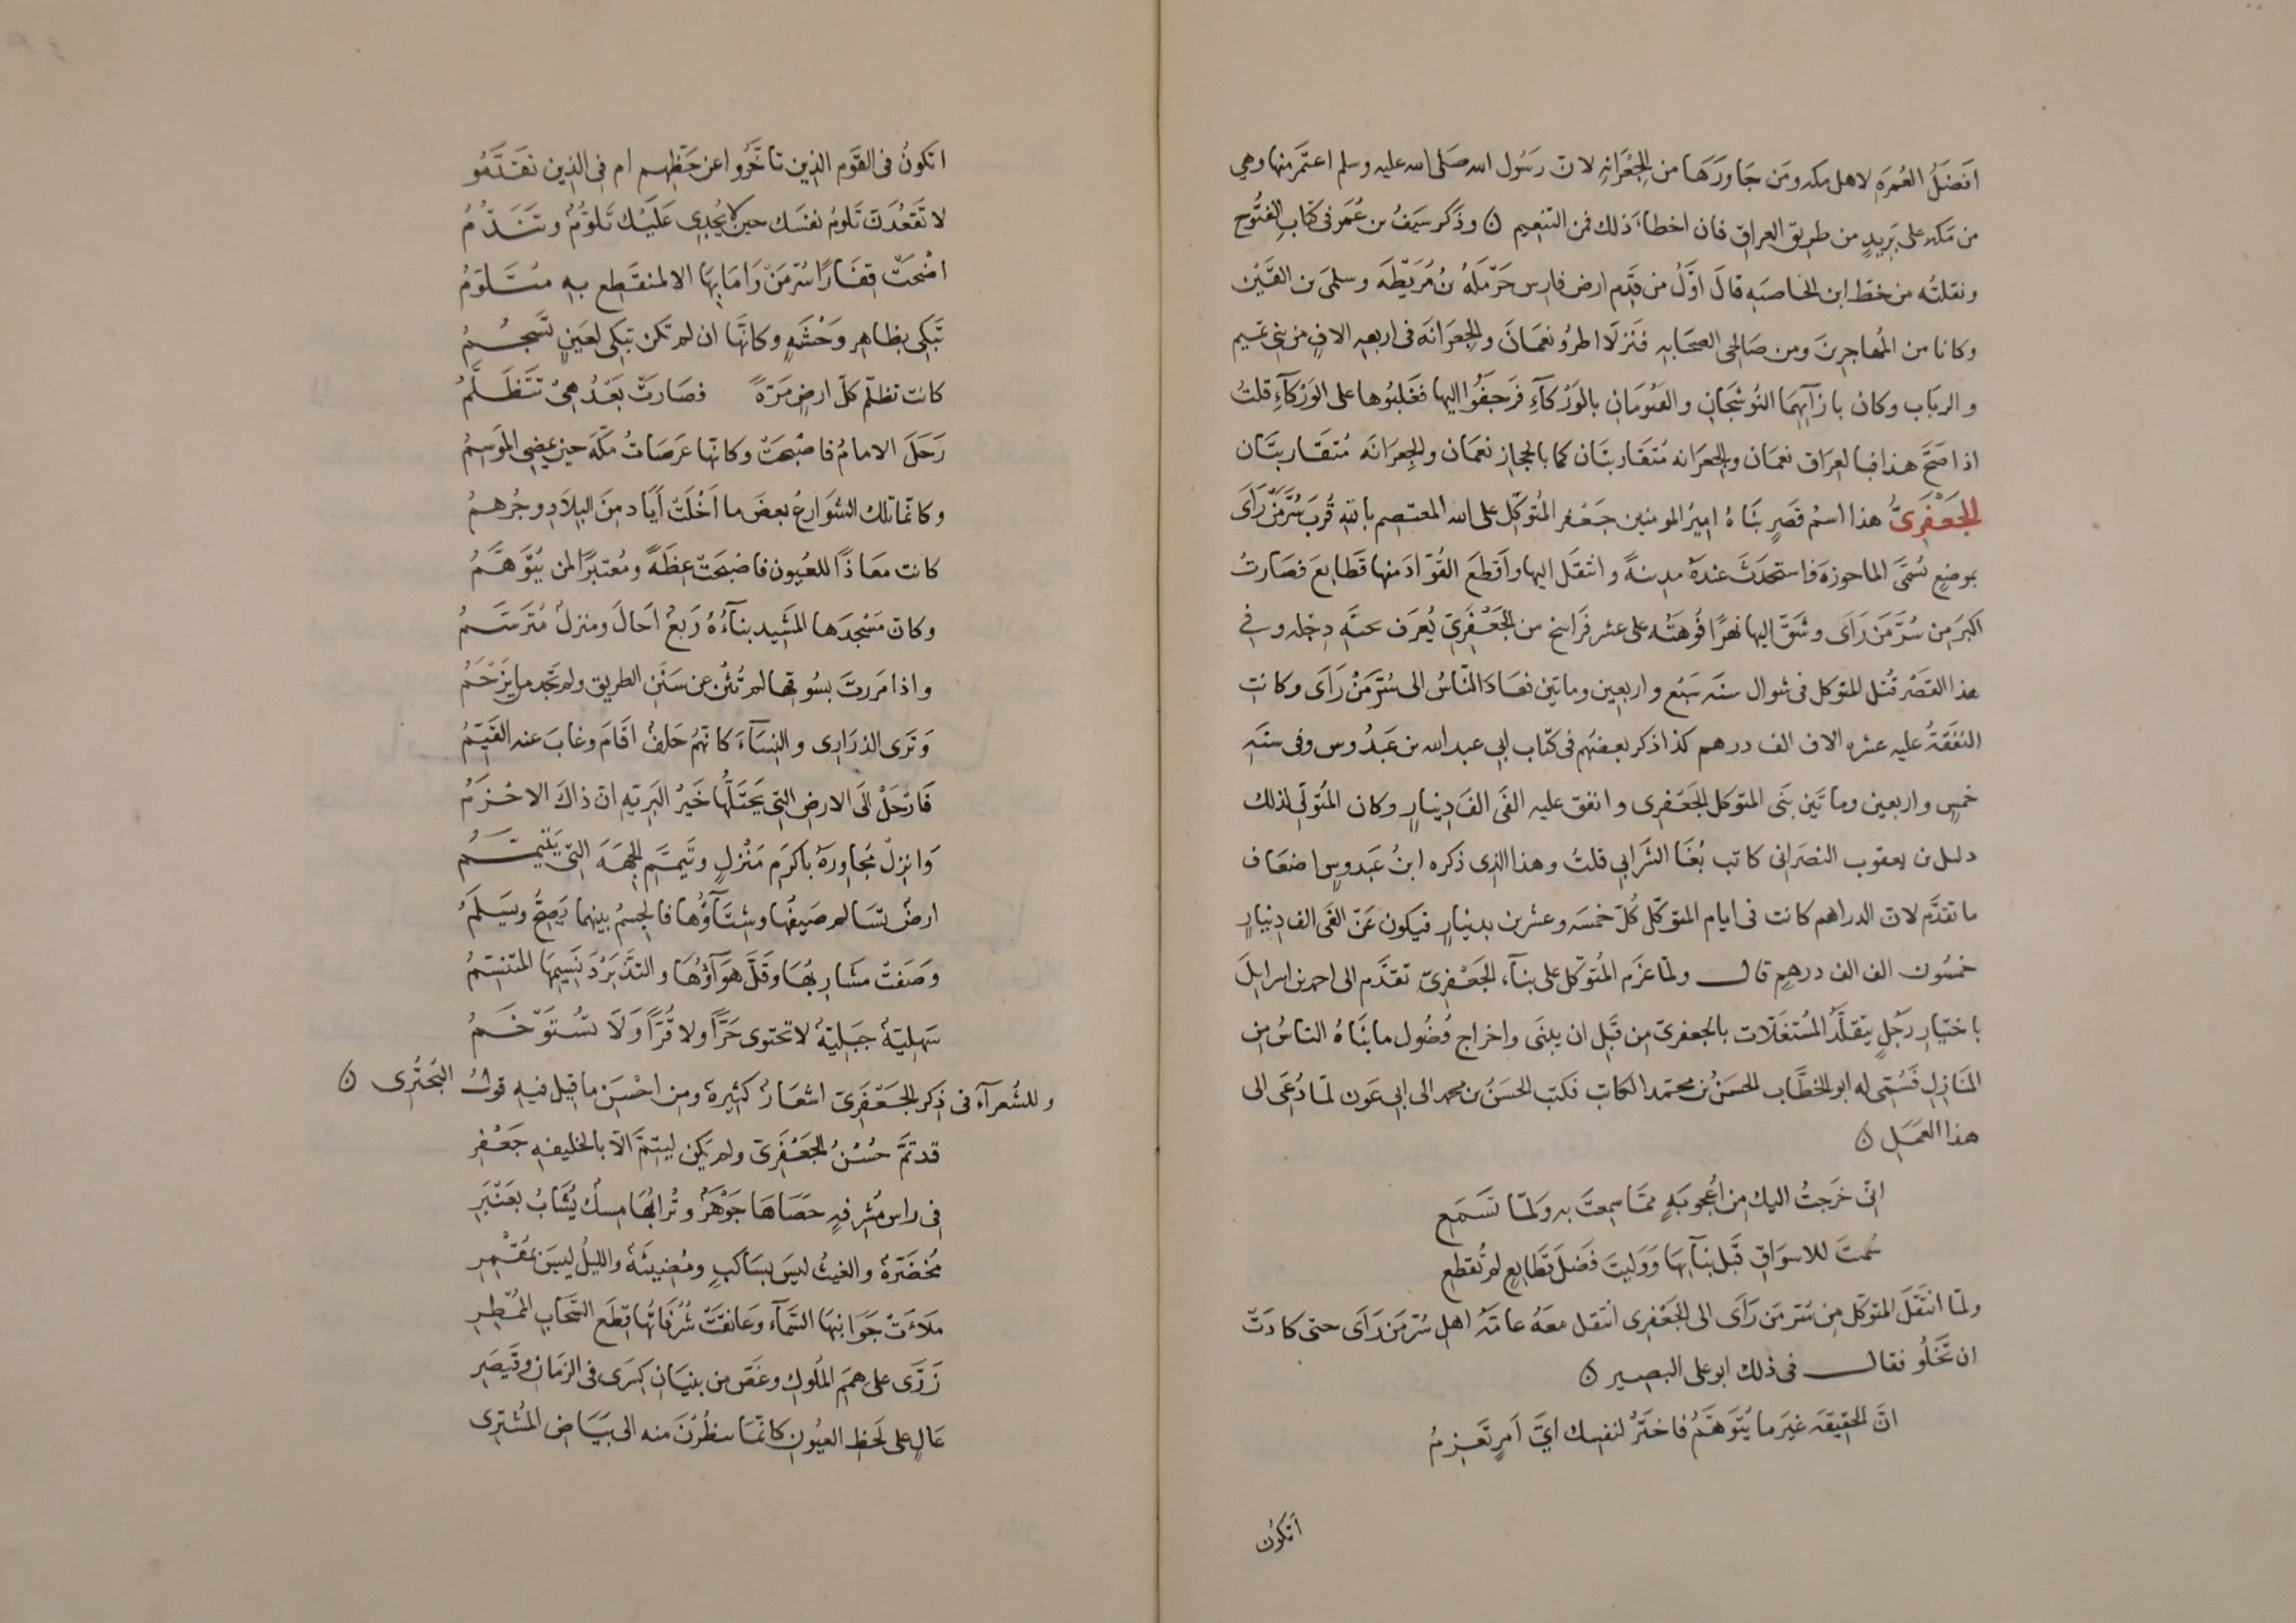 افضَلُ العُمرَهِ لاهل مكه ومَن جَاورَهَا من الجِعْرَانهِ لان رَسُول الله صَلى الله عليه وسلم اعتمَر منها وهي
من مَكه على بَرِيدٍ من طريق العراق فان اخطاءَ ذلك فمن التنعيم ن وذكر سَيفُ بن عُمَر فى كتاب الفتُوح
ونقلتُه من خط ابن الخاصبَه قالَ اوّلُ من قَدِم ارض فارس حَرْمَلهُ بنُ مُرَيْطَه وسلمىَ بن القَيْن
وكانا من المُهاجرينَ ومن صَالحِى الصحَابه فنَزلَا اطرُ ونعمَانَ والجِعرَانَه فى اربعهِ الافٍ من بنى تميم
والربَاب وكان بازآيهِمَا النُوشَجَانِ والفيُومَانِ بالوَرْكآءِ فَرَجَفُوا اليها فغَلبُوها على الوَرْكآءِ قلتُ
اذا صَحَّ هذا فبا لعِرَاق نعمَان والجعرَانه مُتقاربتَان كما بالحجاز نعمَان والجِعرَانَه مُتقَاربتَان
الجَعْفَرِىُّ هذا اسمُ قصَرٍ بنَاهُ اميرُ المومنين جَعْفر المُتوَكّل على الله المعتصم بالله قُربَ سُرَّ مَنْ رَآىَ
بموضعٍ يُسمَّى الماحوزَه فاستحدَثَ عندَهُ مدينهً وانتقلَ اليها واَقطعَ القُوّادَ منها قَطايعَ فصَارتْ
اكبرَ مِن سُرَّ مَن رَآىَ وشَقّ اليها نهرًا فُوهَتهُ على عشر فرَاسخ من الجَعْفَرِىّ يُعرَف بجَبّهِ دجله وفى
هذا القصَر قُتل المتوكل فى شوال سنَه سَبْع واربعين وماتين فعَادَ النّاسُ الى سُرَّ مَنْ رَآىَ وكانتِ
النفَقَةُ عليه عشره الاف الف درهم كذا ذكر بعضُهم فى كتاب ابى عبد الله بن عَبْدُوس وفى سنَهِ
خمسٍ واربعين وماتَين بنَى المتوَكل الجَعْفرى وانفق عليه الفَى الفَ دِينارٍ وكان المُتولّى لذلك
دليل بن يعقوب النصَرانى كاتب بُغَا الشَرابى قلتُ وهذا الذى ذكره ابنُ عَبدوسٍ اضعَاف
ما تقدَّم لان الدراهم كانت فى ايام المتوَكّل كُلّ خمْسَه وعشرين بدينارٍ فيكون عَنْ الفَى الف دِينارٍ
خمسُون الف الف درهمٍ قال ولمّا عزَم المُتوَكّل على بنآء الجَعْفرىّ تقدَّم الى احمد بن اسرايلَ
باختيارِ رَجُلٍ يتقلّدُ المُستغَلّات بالجعفرىّ مِن قَبل ان يبنى واخراج فُضُول ما بنَاهُ الناسُ مِن
المنَازلِ فسُمّى له ابو الخطَّاب الحسَنُ بن محتمد الكاتب فكتب الحسَنُ بن محمد الى ابى عَون لمّا دُعىَ الى
هذا العمَلِ ن
انّى خرَجتُ اليك مِن اُعجوبَهٍ ممّا سمِعتَ به ولَمّا تسَمَع
سُمّيتَ للاسوَاقِ قَبل بنآيهَا ووَليتَ فَضلَ قَطَايعٍ لم تُقطَعِ
ولمّا انتقلَ المتوَكّل مِن سُرّ مَن رَآىَ الى الجَعْفرى انتقل معَهُ عامّهُ اهل سُرّ مَن رَآى حتى كادَتْ
ان تخَلُو فقال فى ذلك ابو على البصير ن
انّ الحقيقهَ غيرَ ما يُتوَهَّمُ فاختَرْ لنفسِك اىَّ اَمرٍ تَعزِمُ
اَتكوُن
اتكونُ فى القوَم الذين تاخَّرُوا عن حَظّهِم ام فى الذين تقدَّمُو
لا تَقعُدَنّ تلومُ نفسَك حين لا يُجدِى عَليَك تَلوُّمُ وتنَدُّمُ
اضْحَتْ قِفَارًا سُرّ مَنْ رَا مَابِهَا الالمنقَطِع بهِ مُتَلوّمُ
تَبكى بظاهِر وَحْشَهٍ وكانّهَا ان لم تكن تبكى لعَينٍ تَسْجُمُ
كانت تظلّم كلّ ارضٍ مَرّهً فصَارتْ بَعْدُ هِىْ تَتظَلَّمُ
رَحَلَ الامامُ فاصْبَحَتْ وكانّها عَرصَاتُ مكّهَ حين يمضِى المَوسِمُ
وكانّما تلك الشوَارعُ بعضَ ما اَخْلَتْ اَيَاد مِنَ البلادِ وجُرهمُ
كانت معَاذًا للعيُون فاصْبَحَتْ عِظَهً ومُعتبَرًا لمن يُتوَهَّمُ
وكان مَسْجدَها المَشيد بنآءُهُ رَبعٌ اَحَالَ ومنزلٌ مُترَسَّمُ
واذا مَررتَ بسُوقها لم تُثنَ عن سَنَنِ الطريق ولم تجَد مل يَزْحَمُ
وَترَى الذرَارِى والنِسَآءَ كانهُم خَلفٌ اقَامَ وغابَ عنه القَيّمُ
فَارْحَلْ الَى الارضِ التى يَحْتَلّها خَيرُ البَريّهِ انّ ذاكَ الاحْزَمُ
وَانزِلْ مُجَاورَهُ باكرَم مَنْزلٍ وتَيمَّم الجهَهَ التى يَتيمّمُ
ارضٌ تسَالم صَيفُها وشِتَآؤُها فالجسمُ بينهما يَصِحُّ ويَسلَمُ
وصَفتْ مشَاربُهَا وقَلَّ هَوَآؤُهَا والتذَّ بَرْدَ نَسِيمِهَا المتنسّمُ
سَهليّهٌ جَبليّهٌ لا تحتوى حَرًّا ولا قُرًّا وَلَا تسُتَوْخَمُ
وللشُعرآءِ فى ذِكر الجَعْفَرِىّ اشعَارٌ كثيرهٌ ومن احْسَن ما قيل فيهِ قولُ البُحْتُرى ن
قد تمَّ حُسْنُ الجَعْفَرِىّ ولم يَكن ليَتمَّ الّا بالخليفهِ جَعْفر
فى راس مُشرفهٍ حَصَاهَا جَوْهَرٌ وتُرابُهَا مِسكٌ يُشَابُ بعَنْبَرِ
مُخضرّهٌ والغيثُ ليسَ بِسَاكبٍ ومُضيئَهٌ والليلُ ليسَ بمُقْمِرِ
ملاءَتْ جَوَانبهَا السّمآءَ وعَانقَتْ شُرُفَاتُها قِطعَ السّحَابِ المُمْطِرِ
زَرّى على هممَ المُلُوكِ وغَضّ من بنيَانِ كسرَى فى الزمَان وقَيصَرِ
عَالٍ على لَحَظِ العيُونِ كانّمَا ينظُرْنَ منه الى بيَاضِ المُشْتِرى